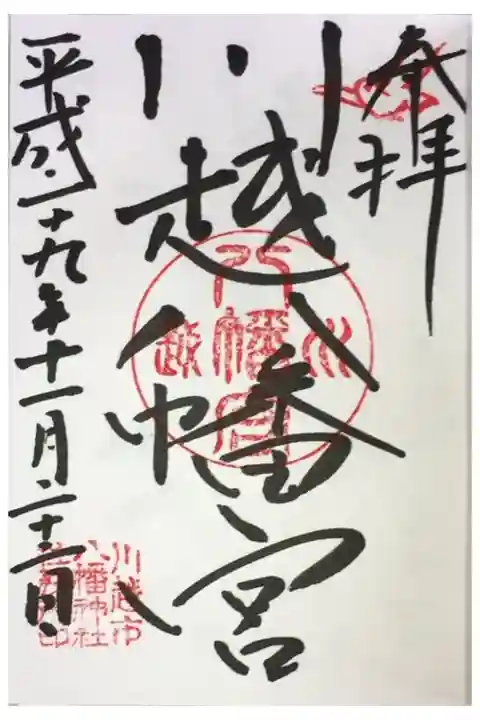 奉拝
川越八幡宮
平成二十九年十一月二十三日
川越
八幡宮
川越市
八幡神社
社務所印